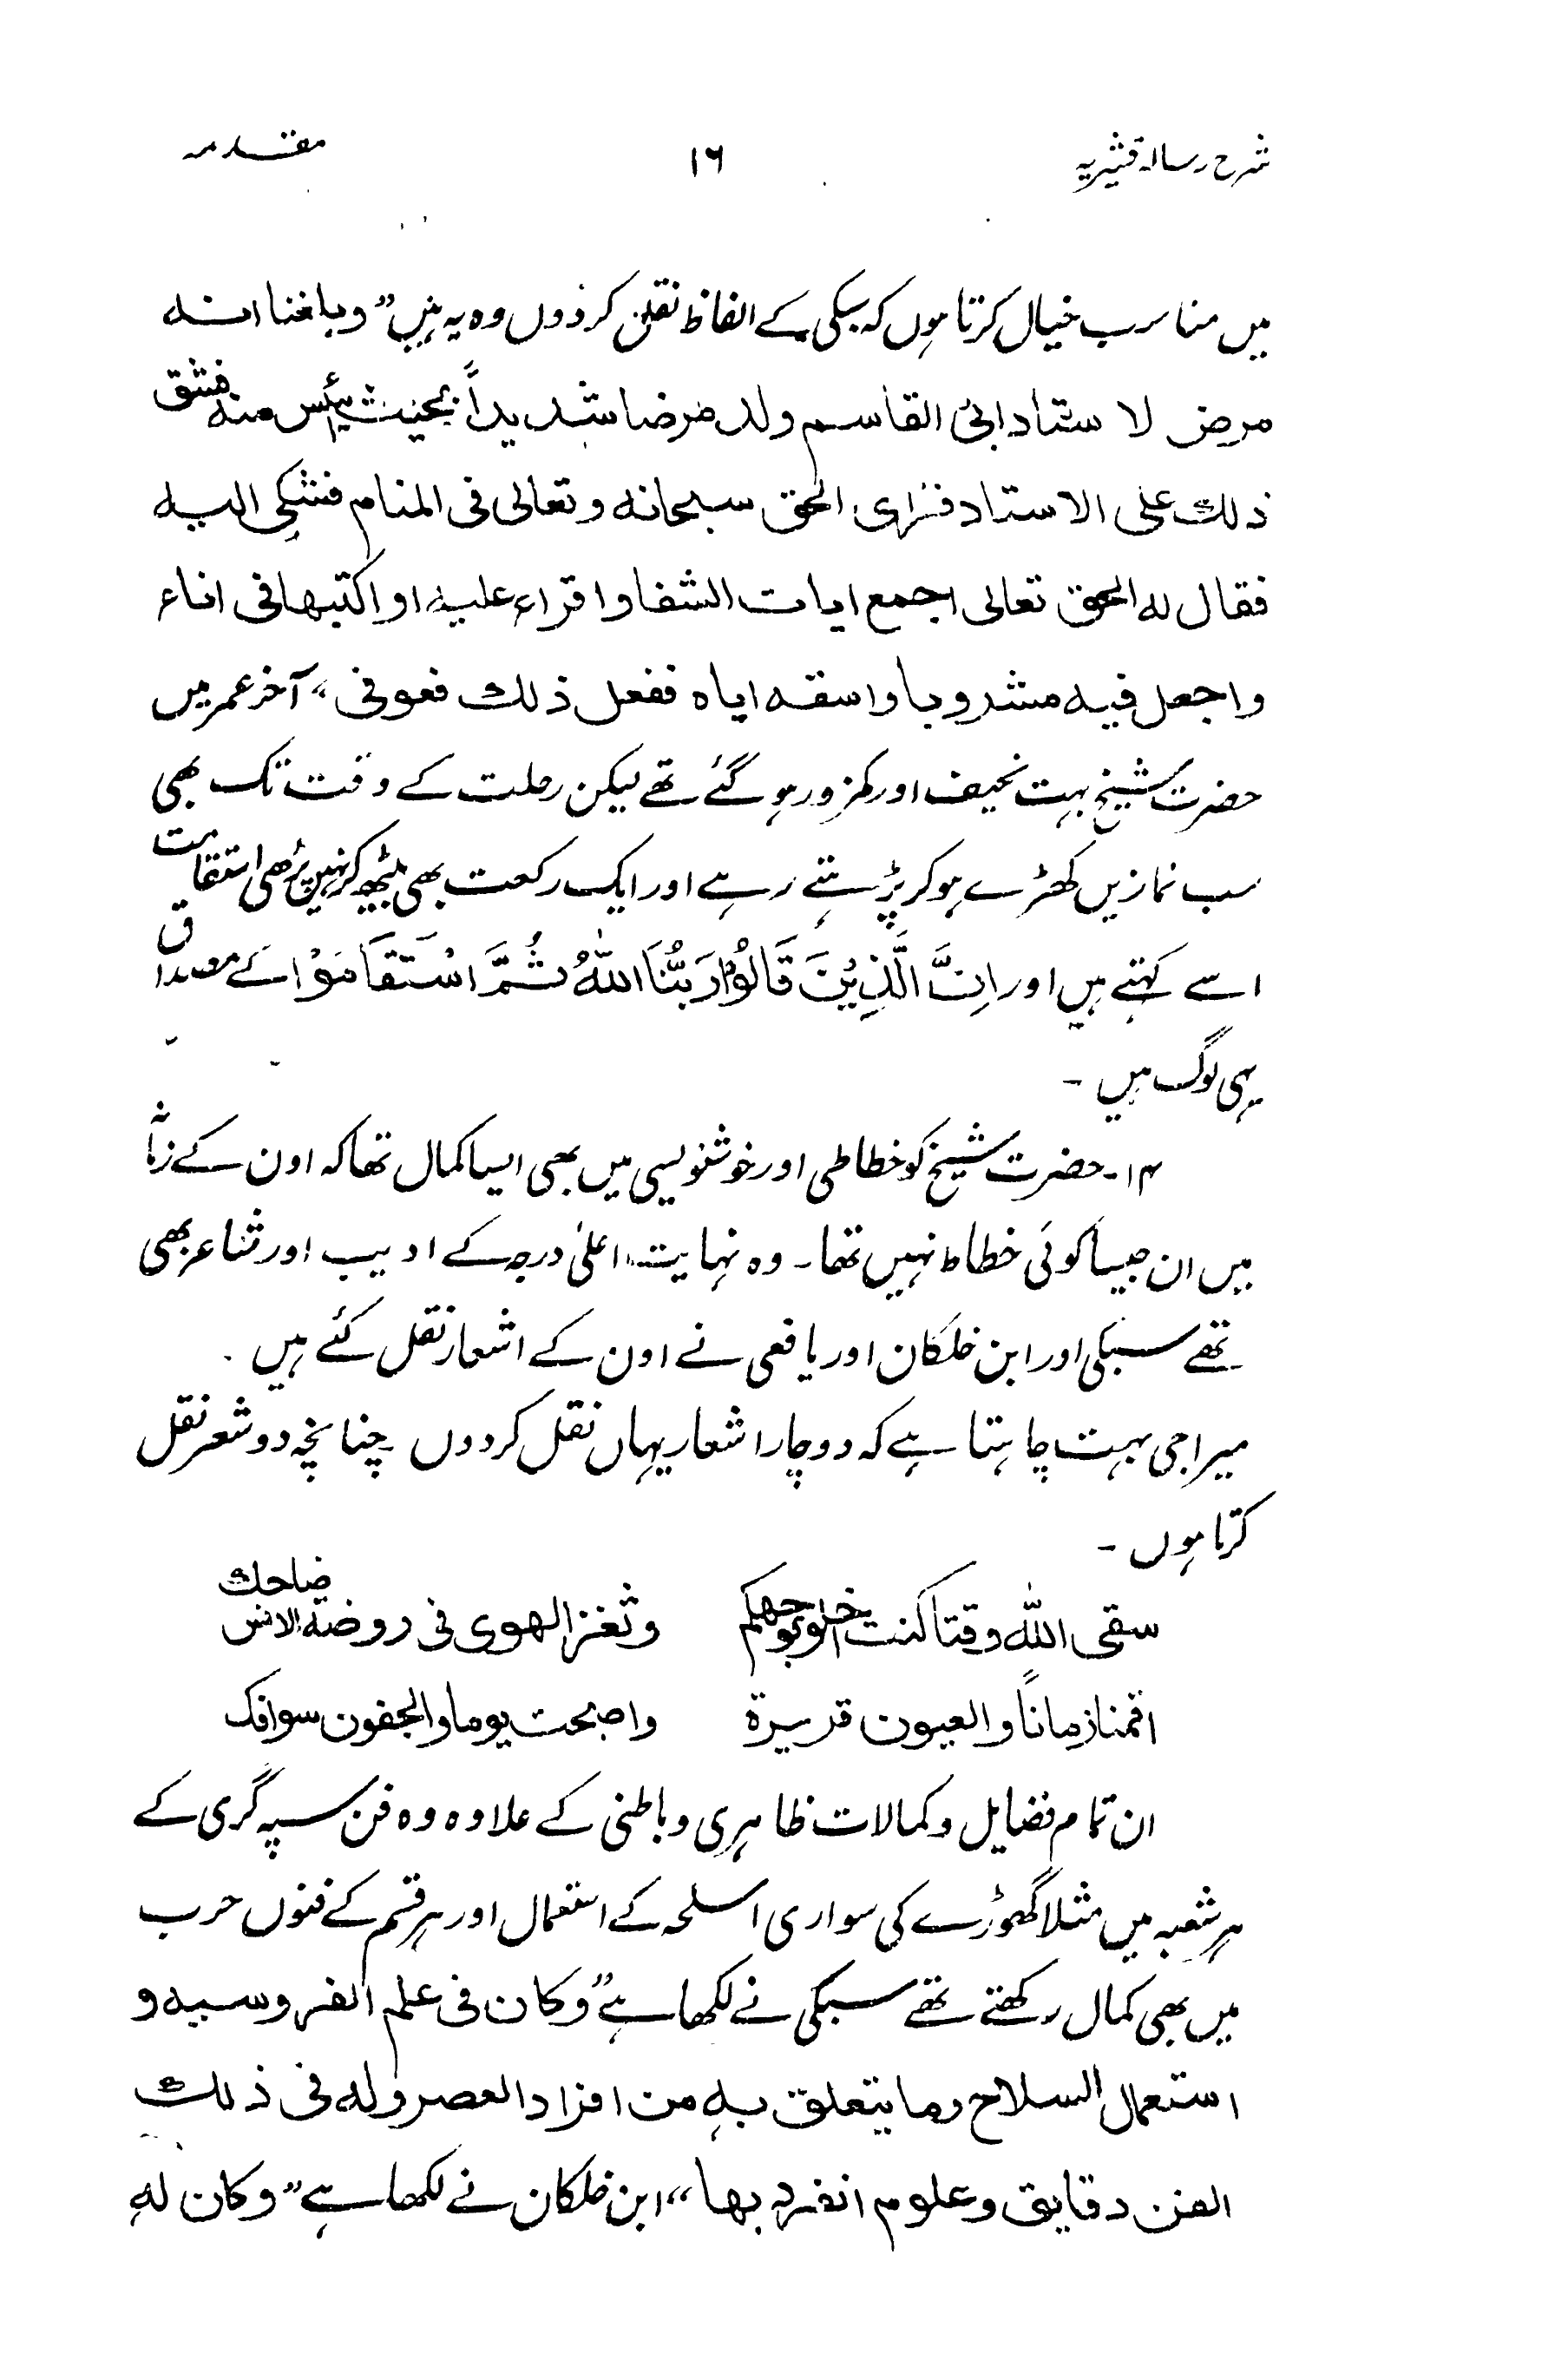 شرح رسالہ قشیریہ ۱۶ مقدمہ
میں مناسب خیال کرتا ہوں کہ سبکی کے الفاظ نقل کردوں وہ یہ ہیں ”وبلغنا انه
مرض لاستاد ابی القاسم ولد مرضا شدیداً بحیث یئس منه فشق
ذلك علی الاستاد فرای الحق سبحانه وتعالی فی المنام فشکی الیه
فقال له الحق تعالی اجمع ایات الشفا واقراء علیه او اکتبها فی اناء
واجعل فیه مشروبا واسقه ایاه ففعل ذلك فعوفی“ آخر عمر میں
حضرت شیخ بہت نحیف اور کمزور ہوگئے تھے لیکن رحلت کے وقت تک بھی
سب نمازیں کھڑے ہوکر پڑہتے رہے اور ایک رکعت بھی بیٹھ کر نہیں پڑھی استقامت
اسے کہتے ہیں اور اِنَّ الَّذِیْنَ قَالُوْا رَبُّنَا اللّٰہُ ثُمَّ اسْتَقَامَوْا کے مصداق
یہی لوگ ہیں ۔
۱۴۔ حضرت شیخ کو خطاطی اور خوشنویسی میں بھی ایسا کمال تھا کہ اون کے زمانہ
میں ان جیسا کوئی خطاط نہیں تھا۔ وہ نہایت اعلیٰ درجہ کے ادیب اور شاعر بھی
تھے سبکی اور ابن خلکان اور یافعی نے اون کے اشعار نقل کئے ہیں ۔
میرا جی بہت چاہتا ہے کہ دو چار اشعار یہاں نقل کردوں چنانچہ دو شعر نقل
کرتا ہوں ۔
سقی اللّٰه وقتا کنت اخلو بوجهکم وثغر الهوی فی روضة الانس ضاحك
اقمنا زماناً والعیون قریرة واصبحت یوما والجفون سوافک
ان تمام فضایل وکمالات ظاہری وباطنی کے علاوہ وہ فن سپہ گری کے
ہر شعبہ میں مثلا گھوڑے کی سواری اسلحہ کے استعمال اور ہر قسم کے فنون حرب
میں بھی کمال رکھتے تھے سبکی نے لکھا ہے ”وکان فی علم الفروسیه و
استعمال السلاح وما یتعلق به من افراد العصر وله فی ذلك
الفن دقایق وعلوم انفرد بها“ ابن خلکان نے لکھا ہے ”وکان له